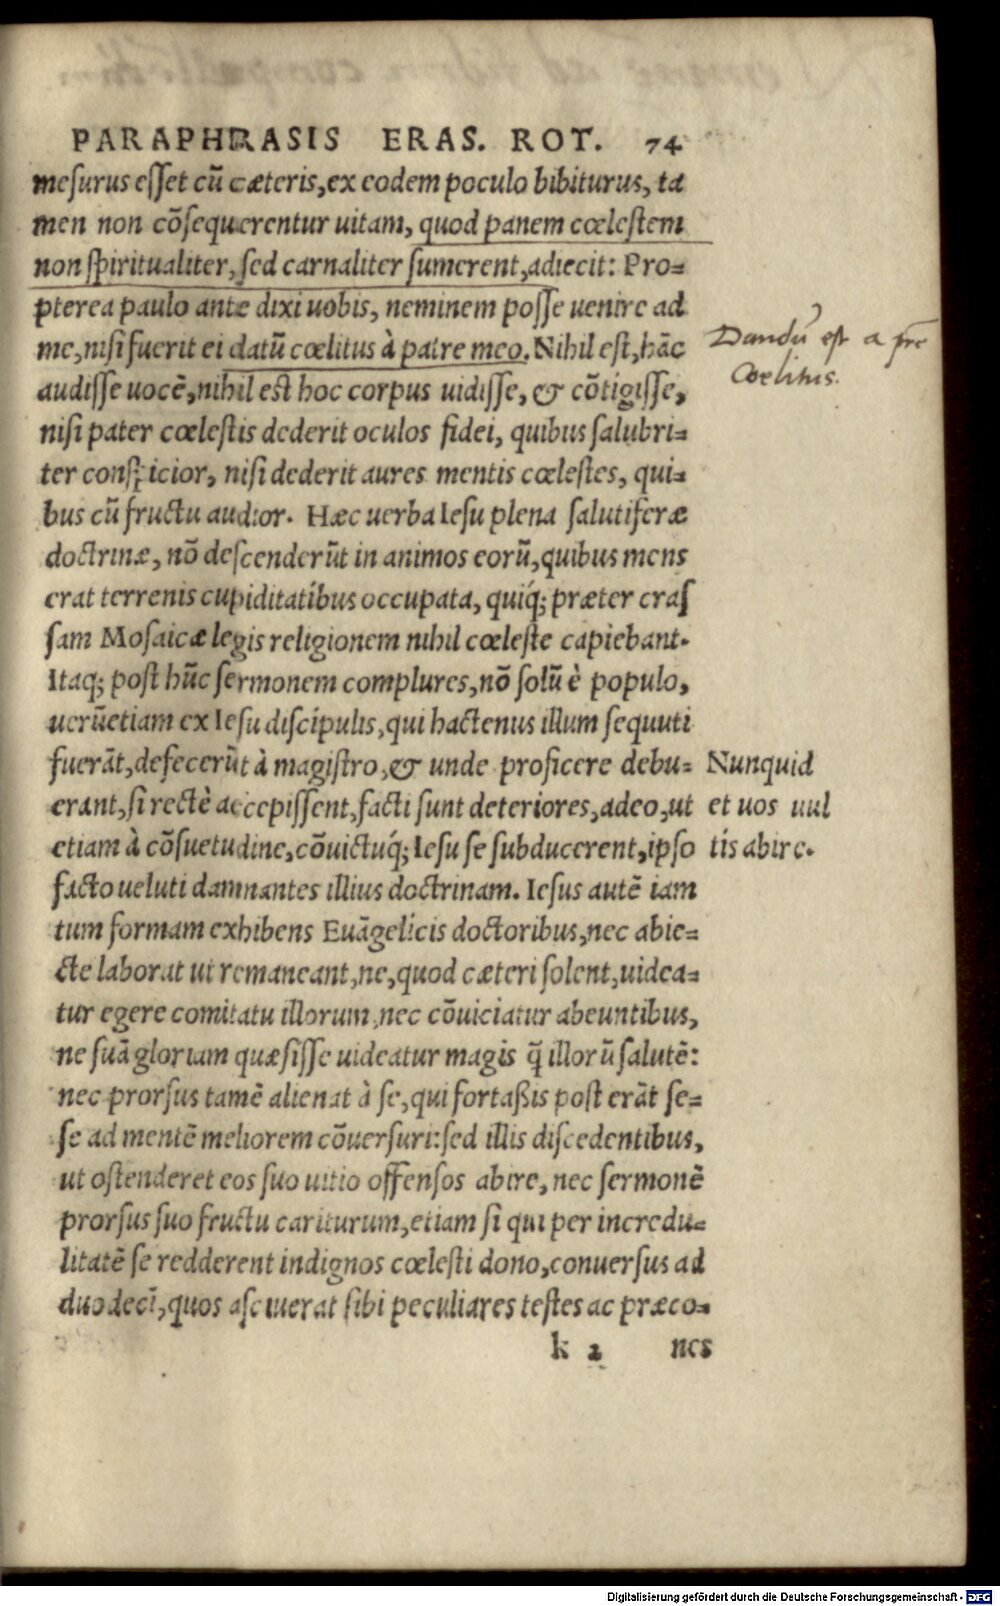 PARAPHRASIS ERAS. ROT. 74
mesurus esset cū cæteris, ex eodem poculo bibiturus, ta
men non cōsequerentur uitam, quod panem cœlestem
non spiritualiter, sed carnaliter sumerent, adiecit: Pro-
pterea paulo ante dixi uobis, neminem posse uenire ad
me, nisi fuerit ei datū cœlitus à patre meo. Nihil est, hāc
audisse uocē, nihil est hoc corpus uidisse, & cōtigisse,
nisi pater cœlestis dederit oculos fidei, quibus salubri-
ter conspicior, nisi dederit aures mentis cœlestes, qui-
bus cū fructu audior. Hæc uerba Iesu plena salutiferæ
doctrinæ, nō descenderūt in animos eorū, quibus mens
erat terrenis cupiditatibus occupata, quiq́; præter cras
sam Mosaicæ legis religionem nihil cœleste capiebant.
Itaq; post hūc sermonem complures, nō solū è populo,
uerūetiam ex Iesu discipulis, qui hactenus illum sequuti
fuerāt, defecerūt à magistro, & unde proficere debu-
erant, si rectè accepissent, facti sunt deteriores, adeo, ut
etiam à cōsuetudine, cōuictuq́; Iesu se subducerent, ipso
facto ueluti damnantes illius doctrinam. Iesus autē iam
tum formam exhibens Euāgelicis doctoribus, nec abie-
cte laborat ut remaneant, ne, quod cæteri solent, uidea-
tur egere comitatu illorum, nec cōuiciatur abeuntibus,
ne suā gloriam quæsisse uideatur magis q̄ illorū salutē:
nec prorsus tamē alienat à se, qui fortaßis post erāt se-
se ad mentē meliorem cōuersuri: sed illis discedentibus,
ut ostenderet eos suo uitio offensos abire, nec sermonē
prorsus suo fructu cariturum, etiam si qui per incredu-
litatē se redderent indignos cœlesti dono, conuersus ad
duodecī, quos asciuerat sibi peculiares testes ac præco-
k 2 nes
Dandū est a pre
Coelitus.
Nunquid
et uos uul
tis abire.
Digitalisierung gefördert durch die Deutsche Forschungsgemeinschaft - DFG